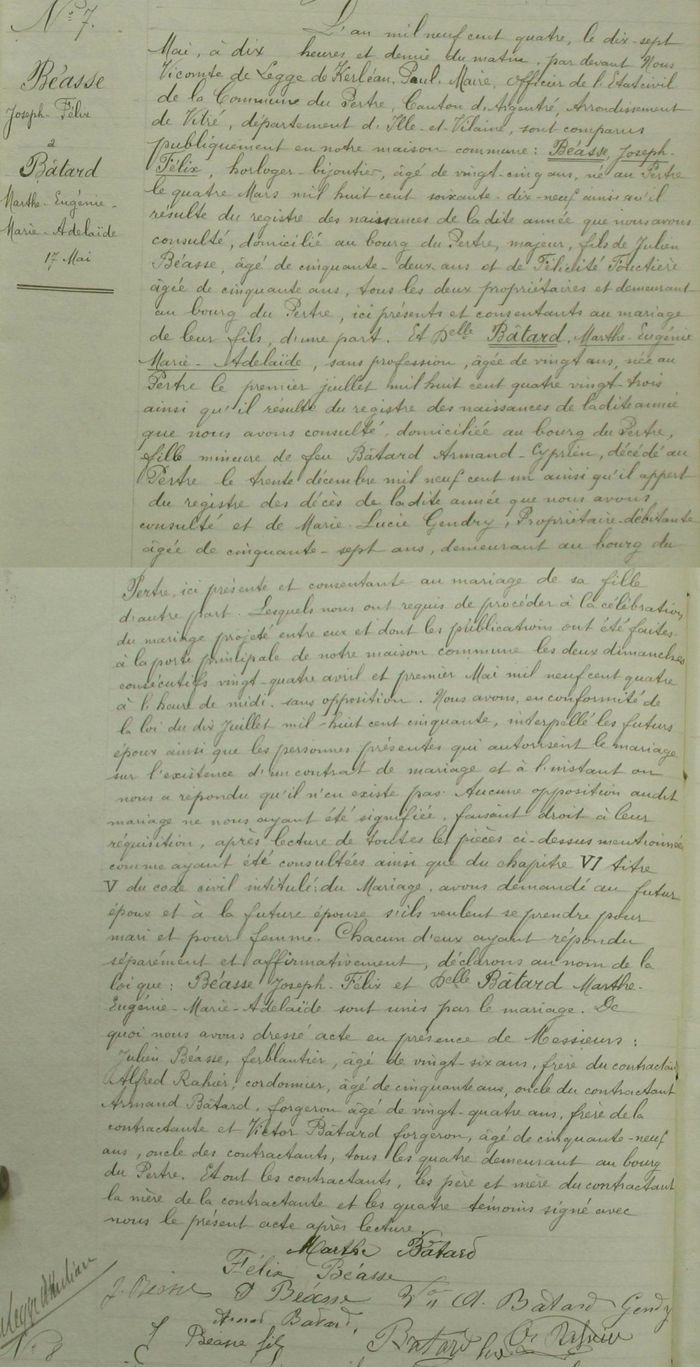 N° 7.
Béasse
Joseph-Félix
a
Bâtard
Marthe-Eugénie-
Marie-Adelaïde
17 Mai
L'an mil neuf cent quatre, le dix-sept
Mai, à dix heures et demie du matin, par devant Nous
Vicomte de Legge de Kerléan, Paul-Marie, officier de l'Etat civil
de la Commune du Pertre, Canton d'Argentré, Arrondissement
de Vitré, département d'Ille-et-Vilaine, sont comparus
publiquement en notre maison commune : Béasse, Joseph-
Félix, horloger-bijoutier, âgé de vingt-cinq ans, né au Pertre
le quatre Mars mil huit cent soixante-dix-neuf ainsi qu'il
résulte du registre des naissances de ladite année que nous avons
consulté, domicilié au bourg du Pertre, majeur, fils de Julien
Béasse, âgé de cinquante-deux ans et de Félicité
âgée de cinquante ans, tous les deux propriétaires et demeurant
au bourg du Pertre, ici présents et consentants au mariage
de leur fils, d'une part. Et Delle Bâtard, Marthe-Eugénie
Marie-Adelaïde, sans profession, âgée de vingt ans, née au
Pertre le premier juillet mil huit cent quatre vingt-trois
ainsi qu'il résulte du registre des naissances de ladite année
que nous avons consulté, domiciliée au bourg du Pertre,
fille mineure de feu Bâtard Armand-Cyprien, décédé au
Pertre le trente décembre mil neuf cent un ainsi qu'il appert
du registre des décès de ladite année que nous avons
consulté et de Marie-Lucie Gendry, Propriétaire-débitante
âgée de cinquante-sept ans, demeurant au bourg du
Pertre, ici présente et consentante au mariage de sa fille
d'autre part. Lesquels nous ont requis de procéder à la célébration
du mariage projeté entre eux et dont les publications ont été faites
à la porte principale de notre maison commune les deux dimanches
consécutifs vingt-quatre avril et premier Mai mil neuf cent quatre
à l'heure de midi, sans opposition. Nous avons, en conformité de
la loi du dix Juillet mil-huit cent cinquante, interpellé les futurs
époux ainsi que les personnes présentes qui autorisent le mariage
sur l'existence d'un contrat de mariage et à l'instant on
nous a répondu qu'il n'en existe pas. Aucune opposition audit
mariage ne nous ayant été signifiée, faisant droit à leur
réquisition, après lecture de toutes les pièces ci-dessus mentionnées
comme ayant été consultées ainsi que du chapitre VI titre
V du code civil intitulé : du Mariage, avons demandé au futur
époux et à la future épouse s'ils veulent se prendre pour
mari et pour femme. Chacun d'eux ayant répondu
séparément et affirmativement, déclarons au nom de la
loi que : Béasse Joseph-Félix et Delle Bâtard Marthe-
Eugénie-Marie-Adelaïde sont unis par le mariage. De
quoi nous avons dressé acte en présence de Messieurs :
Julien Béasse, ferblantier, âgé de vingt-six ans, frère du contractant
Alfred Rahier, cordonnier, âgé de cinquante ans, oncle du contractant
Armand Bâtard, forgeron âgé de vingt-quatre ans, frère de la
contractante et Victor Bâtard forgeron, âgé de cinquante-neuf
ans, oncle des contractants, tous les quatre demeurant au bourg
du Pertre. Et ont les contractants, les père et mère du contractant
la mère de la contractante et les quatre témoins signé avec
nous le présent acte après lecture.
Marthe Bâtard
Félix Béasse
Béasse Bâtard Gendry
Bâtard,
Béasse fils Bâtard
N° 8